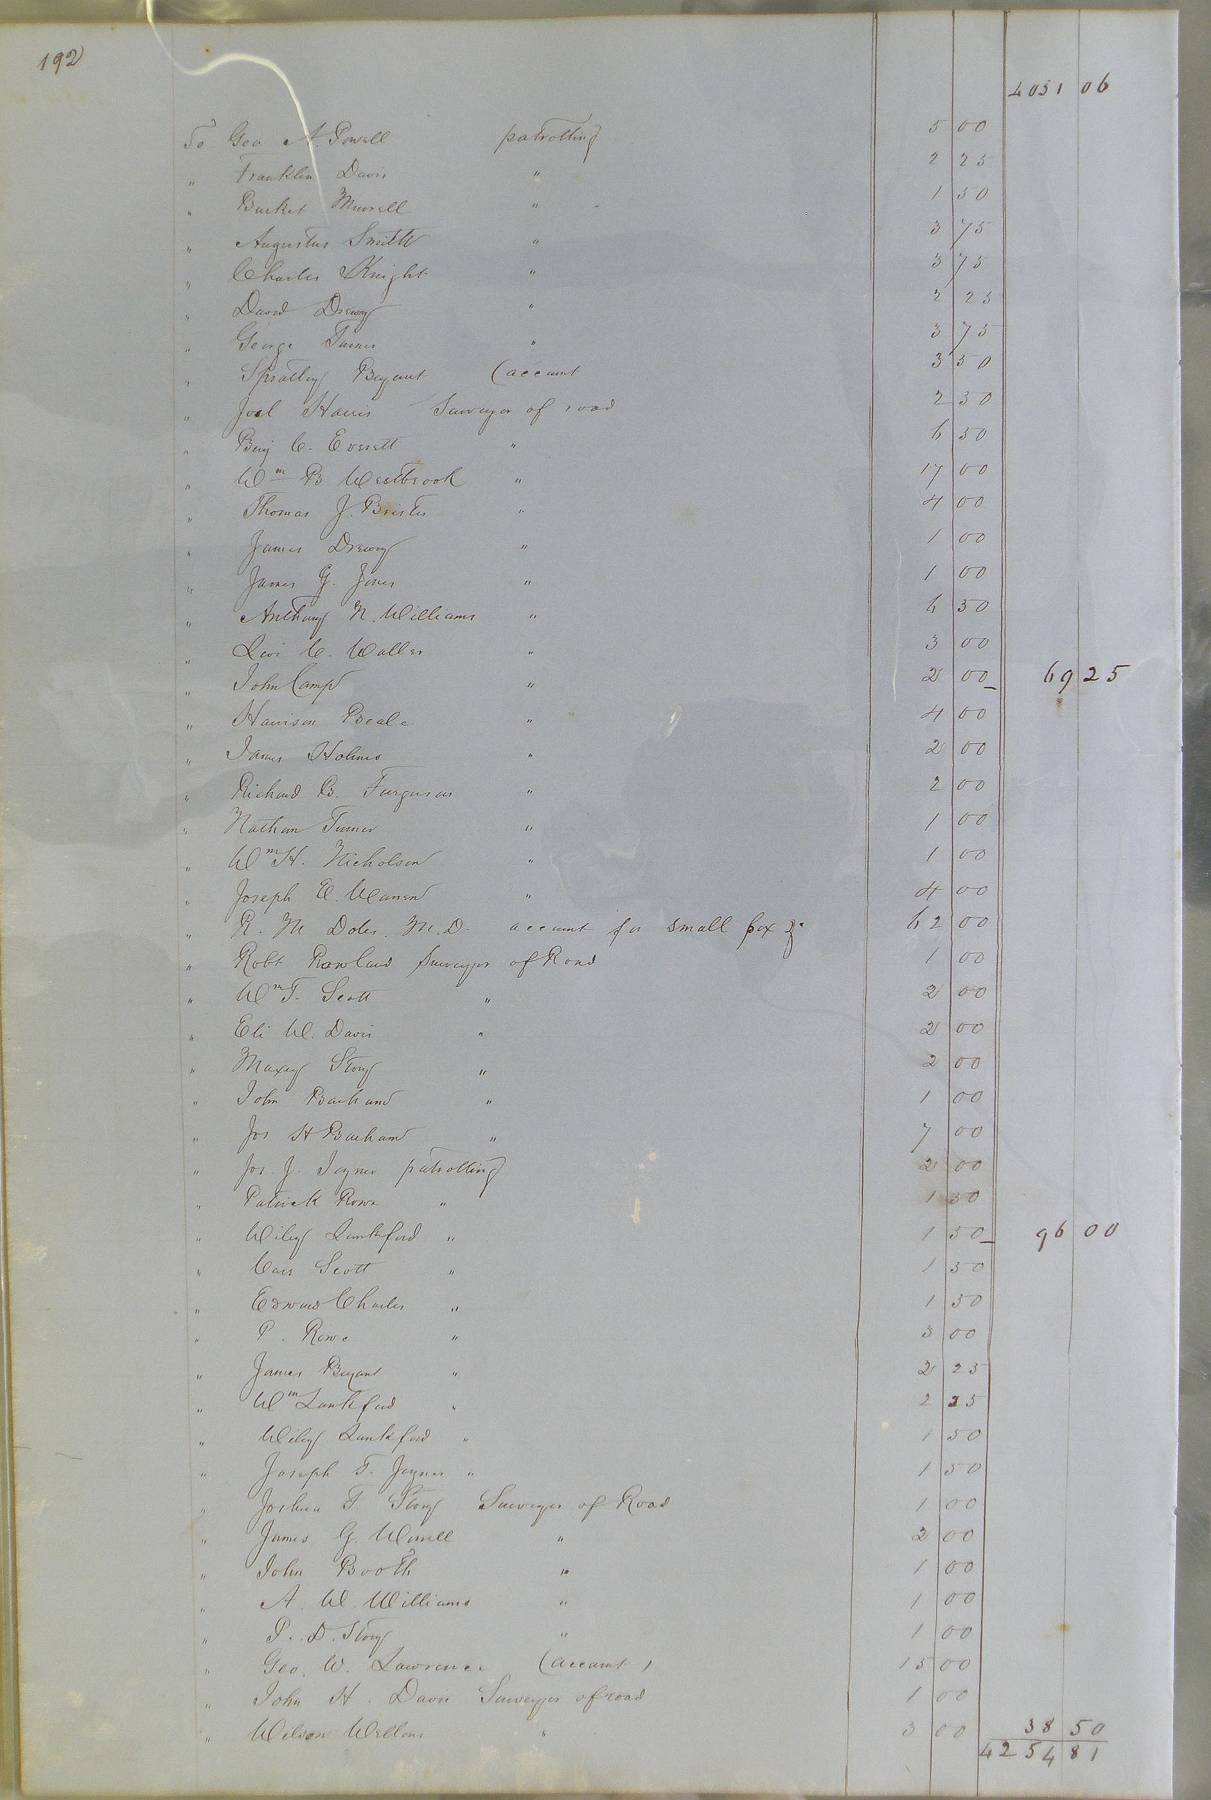 192
4051 06
To Geo A Powell patrolling 5 00
" Franklin Davis " 2 25
" Burket Murrell " 1 50
" Augustus Smith " 3 75
" Charles Knight " 3 75
" David Drewry " 2 25
" George Turner " 3 75
" Spratley Bryant (account 3 50
" Joel Harris Surveyor of road 2 50
" Benj C. Everett " 6 50
" Wm B Westbrook " 17 00
" Thomas J. 4 00
" James Drewry " 1 00
" James G. Jones " 1 00
" Anthony N. Williams " 6 50
" Levi C. Waller " 3 00
" John Camp " 2 00 69 25
" Harrison Beale " 4 00
" James Holmes " 2 00
" Richard B. Ferguson " 2 00
" Nathan Turner " 1 00
" Wm H. Nicholson " 1 00
" Joseph E. Warren " 4 00
" R. M Doles. M.D. account for small pox &c 62 00
" Robt Rowland Surveyor of Road 1 00
" Wm T. Scott " 2 00
" Eli W. Davis " 2 00
" Maxey Story " 2 00
" John Barham " 1 00
" Jos H Barham " 7 00
" Jos. J. Joyner patrolling 2 00
" Patrick Rowe " 1 50
" Wiley Lankford " 1 50 96 00
" Carr Scott " 1 50
" Edward Charles " 1 50
" P. Rowe " 3 00
" James Bryant " 2 25
" Wm Lankford " 2 25
" Wiley Lankford " 1 50
" Joseph T. Joyner " 1 50
" Joshua T. Story Surveyor of Road 1 00
" James G. Worrell " 2 00
" John Booth " 1 00
" A. W. Williams " 1 00
" P. D. Story " 1 00
" Geo. W. Lawrence (account) 15 00
" John H. Davis Surveyor of road 1 00
" Wilson Wellons " 3 00 38 50
4254 81